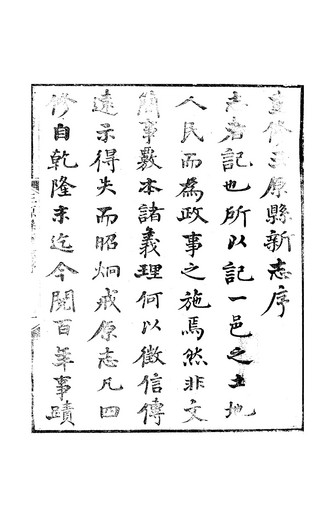 重修三原縣新志序
志者記也所以記一邑之土地
人民而爲政事之施焉然非文
簡事覈本諸義理何以徵信傳
遠示得失而昭炯戒原志凡四
修自乾隆末迄今閱百年事蹟